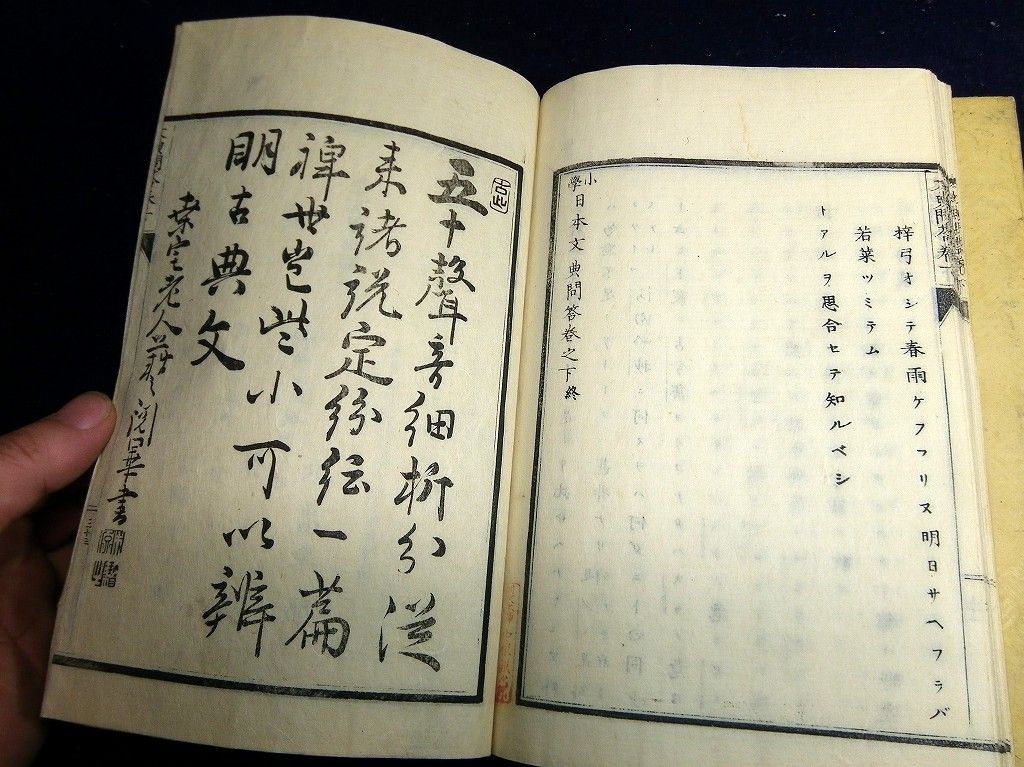 梓弓オシテ春雨ケフフリヌ明日サヘフラバ
若菜ツミテム
トアルヲ思合セテ知ルベシ
小學日本文典問答卷之下終
五十聲音細析分従
来諸説定紛紜一篇
裨世豈些小可以辨
明古典文
老人
閲畢書